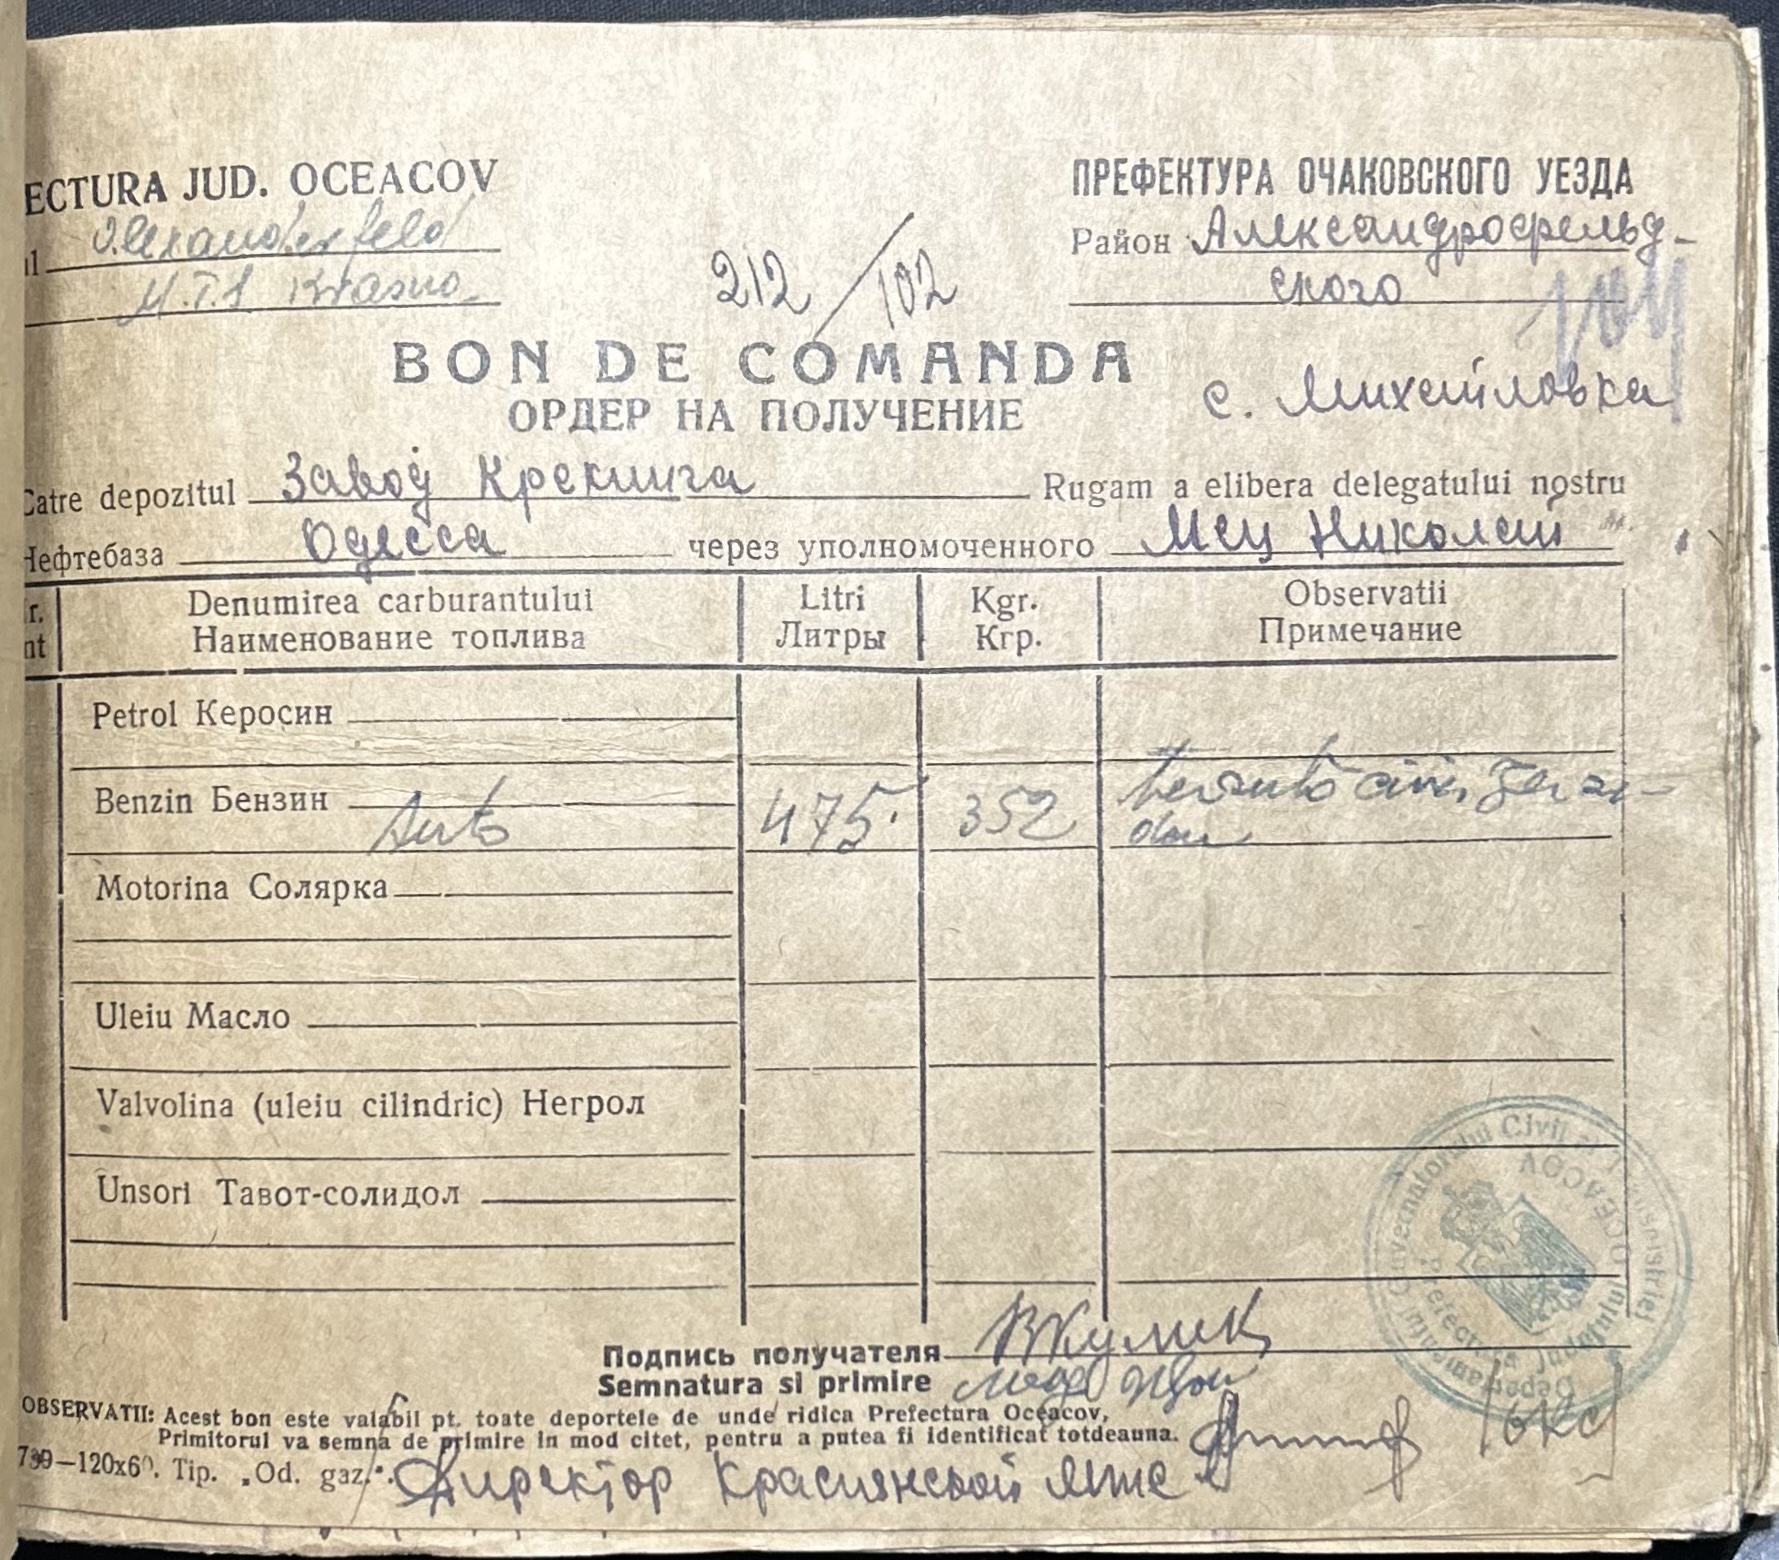 ECTURA JUD. OCEACOV
ПРЕФЕКТУРА ОЧАКОВСКОГО УЕЗДА
Alexanderfeld
Район Александрофельд-
M.T.S Krasno
ского
212/102
BON DE COMANDA
ОРДЕР НА ПОЛУЧЕНИЕ
с. Михайловка
Catre depozitul Завод Крекинга Rugam a elibera delegatului nostru
Нефтебаза Одесса через уполномоченного Мец Николай
r. Denumirea carburantului Litri Kgr. Observatii
nt Наименование топлива Литры Кгр. Примечание
Petrol Керосин
Benzin Бензин Auto 475. 352
Motorina Солярка
Uleiu Масло
Valvolina (uleiu cilindric) Негрол
Unsori Тавот-солидол
Guvernatorului Civil al Transnistriei
Prefectura Județului OCEACOV
Подпись получателя ВКулик
Semnatura si primire
OBSERVATII: Acest bon este valabil pt. toate deportele de unde ridica Prefectura Oceacov,
Primitorul va semna de primire in mod citet, pentru a putea fi identificat totdeauna.
739—120x60. Tip. „Od. gaz.".
Директор Краснянской Мтс